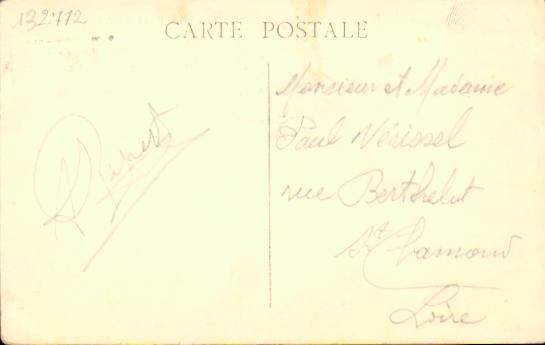 132772
CARTE POSTALE
Monsieur et Madame
Paul Vérissel
rue Berthelot
St Chamond
Loire